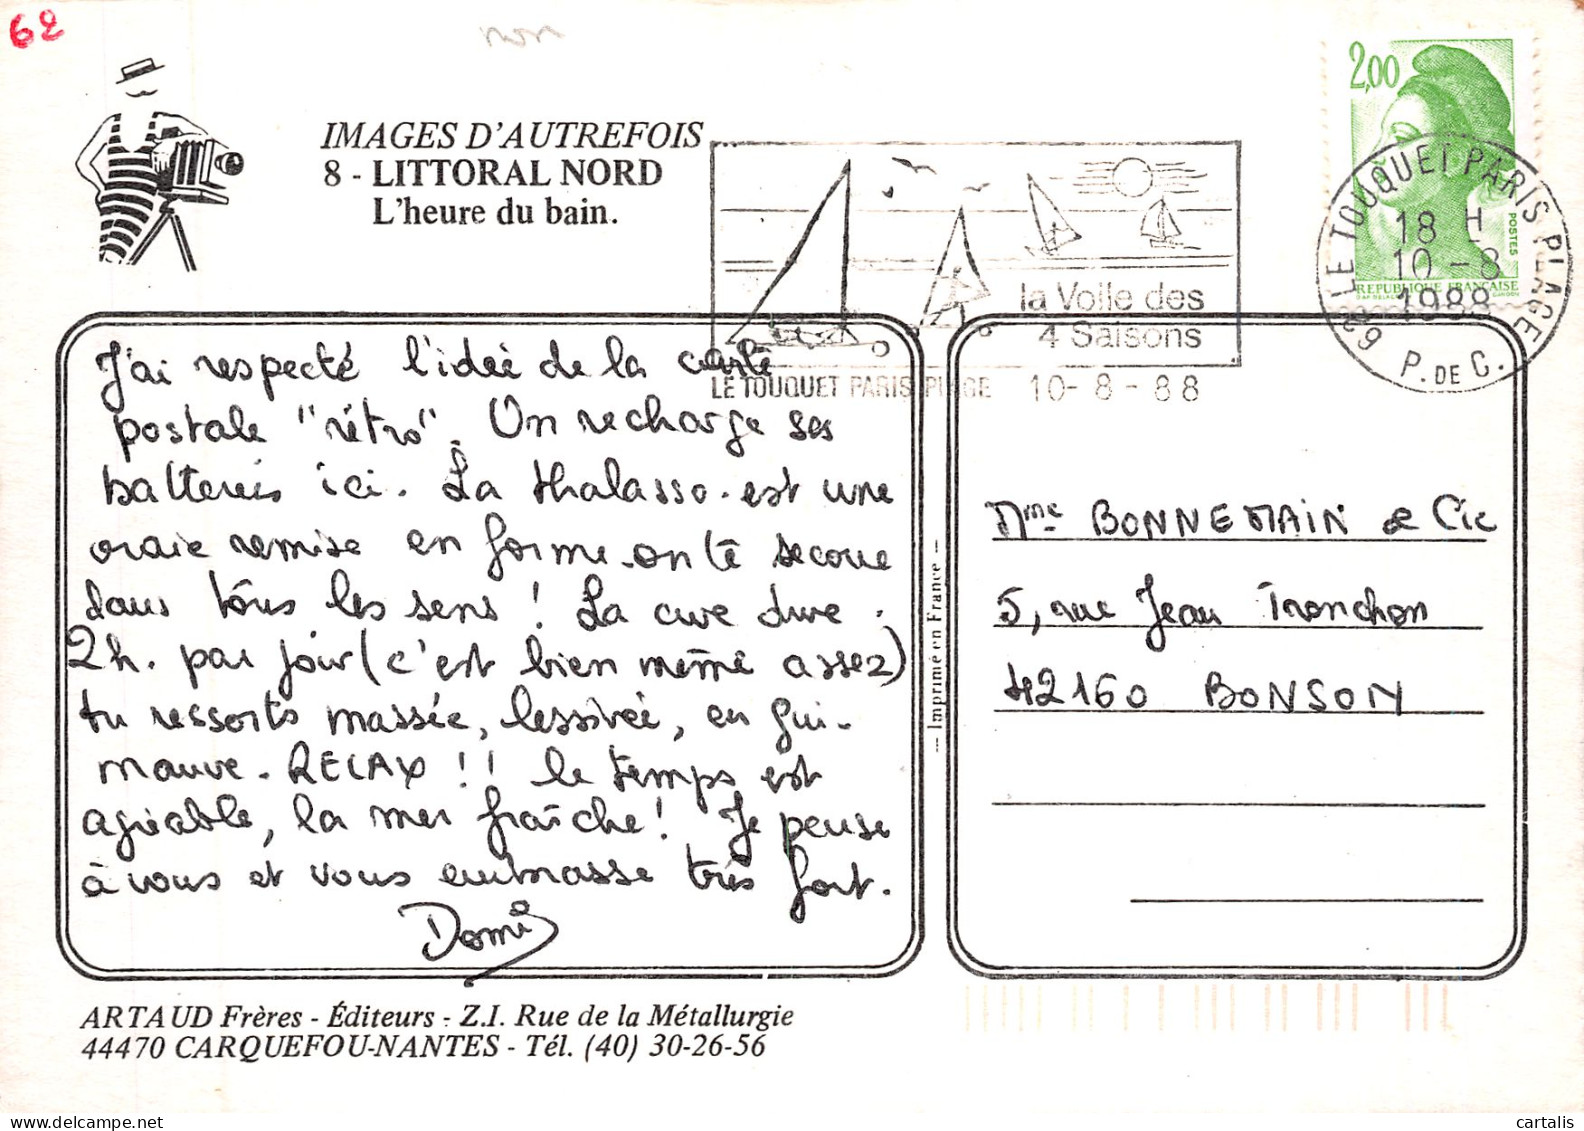 62
non
IMAGES D'AUTREFOIS
8 - LITTORAL NORD
L'heure du bain.
2,00
POSTES
REPUBLIQUE FRANÇAISE
LE TOUQUET PARIS PLAGE
18 H
10 - 8
1988
62 P. DE C.
la Voile des
4 Saisons
LE TOUQUET PARIS PLAGE 10 - 8 - 88
J'ai respecté l'idée de la carte
postale "rétro". On recharge ses
batteries ici. La thalasso. est une
vraie remise en forme. on te secoue
dans tous les sens ! La cure dure
2h. par jour (c'est bien même assez)
tu ressorts massée, lessivée, en gui-
mauve. RELAX !! le temps est
agréable, la mer fraîche ! Je pense
à vous et vous embrasse très fort.
Domi
-- Imprimé en France --
Mme BONNEMAIN & Cie
5, rue Jean Tronchon
42160 BONSON
ARTAUD Frères - Éditeurs - Z.I. Rue de la Métallurgie
44470 CARQUEFOU-NANTES - Tél. (40) 30-26-56
cartalis